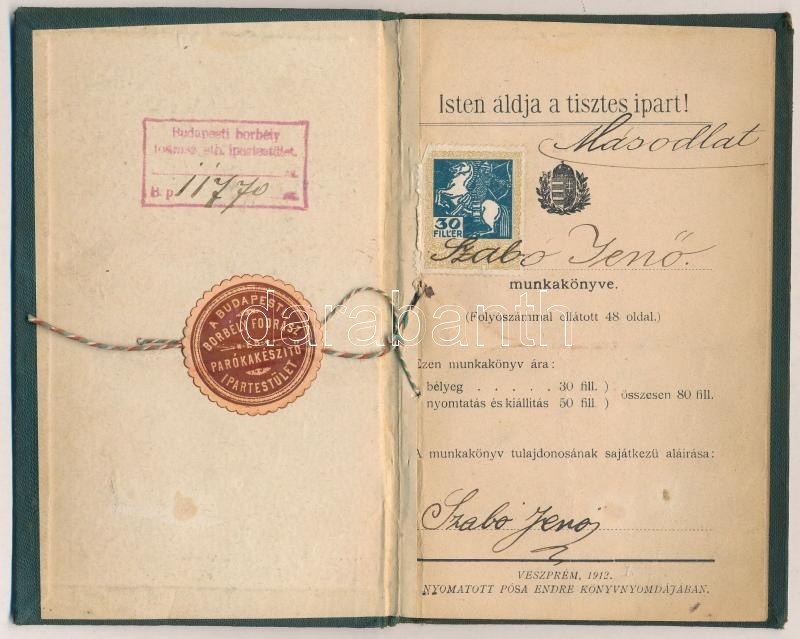 Budapesti borbély
fodrász stb. ipartestület.
B. p. 11770
A BUDAPESTI
BORBÉLY FODRÁSZ
PARÓKAKÉSZITŐ
IPARTESTÜLET
Isten áldja a tisztes ipart!
Másodlat
30
FILLÉR
Szabó Jenő.
munkakönyve.
(Folyószámmal ellátott 48 oldal.)
darabanth
Ezen munkakönyv ára:
bélyeg . . . . . 30 fill. )
nyomtatás és kiállitás 50 fill. ) összesen 80 fill.
A munkakönyv tulajdonosának sajátkezü aláirása:
Szabó Jenő
VESZPRÉM, 1912.
NYOMATOTT PÓSA ENDRE KÖNYVNYOMDÁJÁBAN.